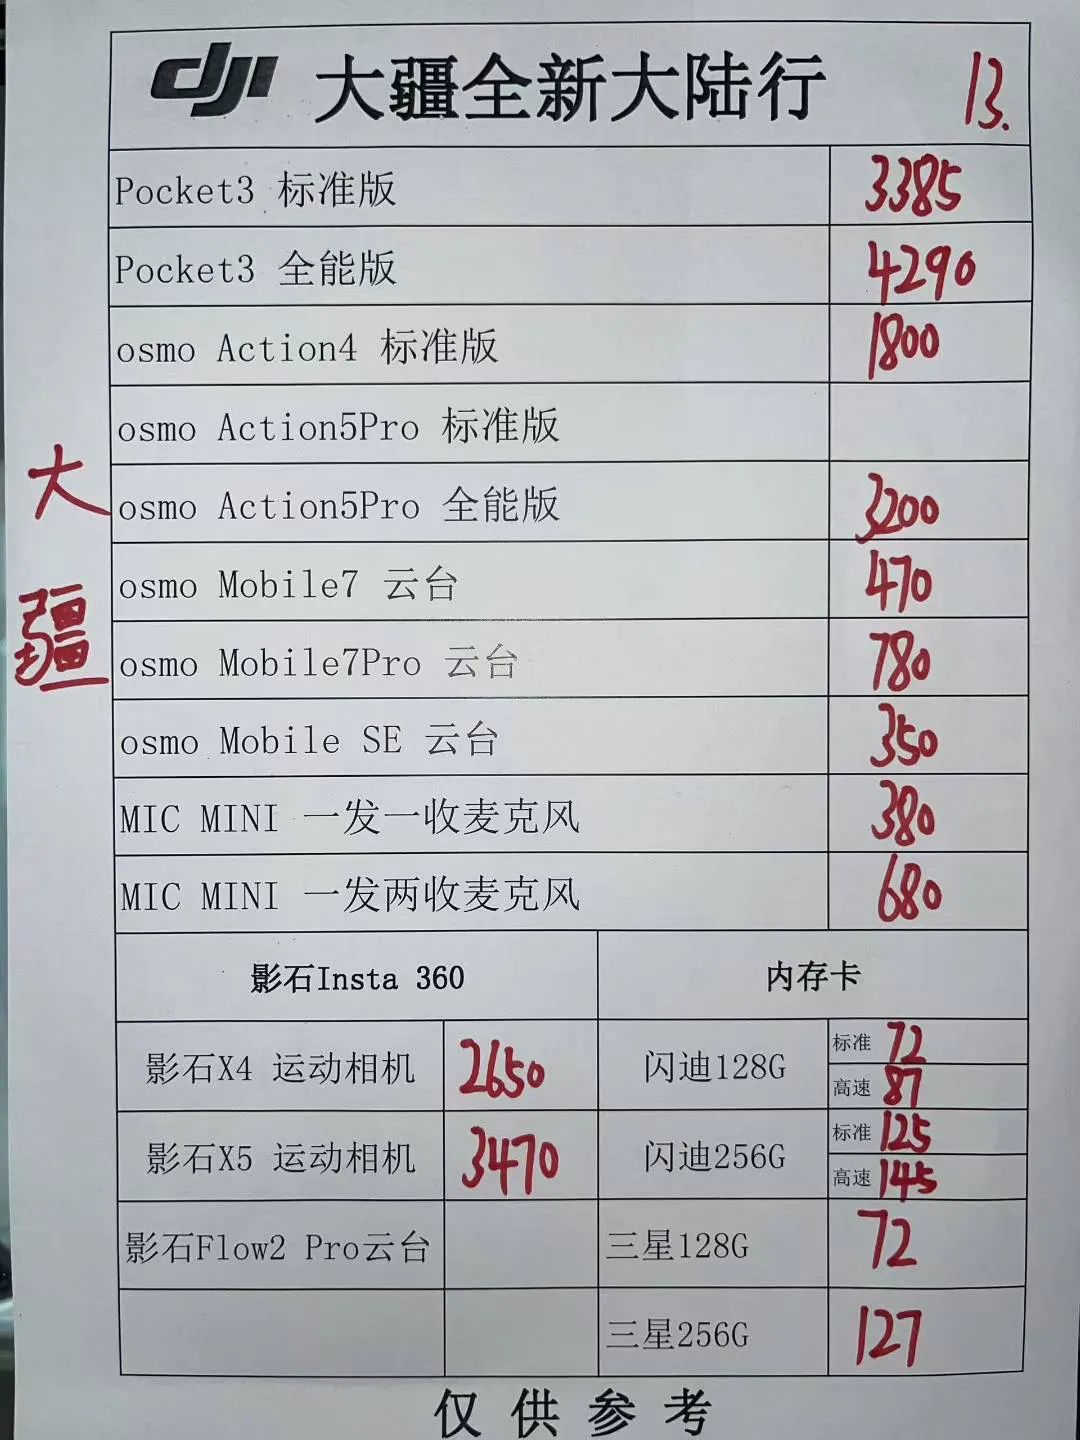 dji 大疆全新大陆行 13.
Pocket3 标准版 3385
Pocket3 全能版 4290
osmo Action4 标准版 1800
osmo Action5Pro 标准版
osmo Action5Pro 全能版 3200
大疆
osmo Mobile7 云台 470
osmo Mobile7Pro 云台 780
osmo Mobile SE 云台 350
MIC MINI 一发一收麦克风 380
MIC MINI 一发两收麦克风 680
影石Insta 360 内存卡
影石X4 运动相机 2650 闪迪128G 标准 72
高速 87
影石X5 运动相机 3470 闪迪256G 标准 125
高速 145
影石Flow2 Pro云台 三星128G 72
三星256G 127
仅供参考